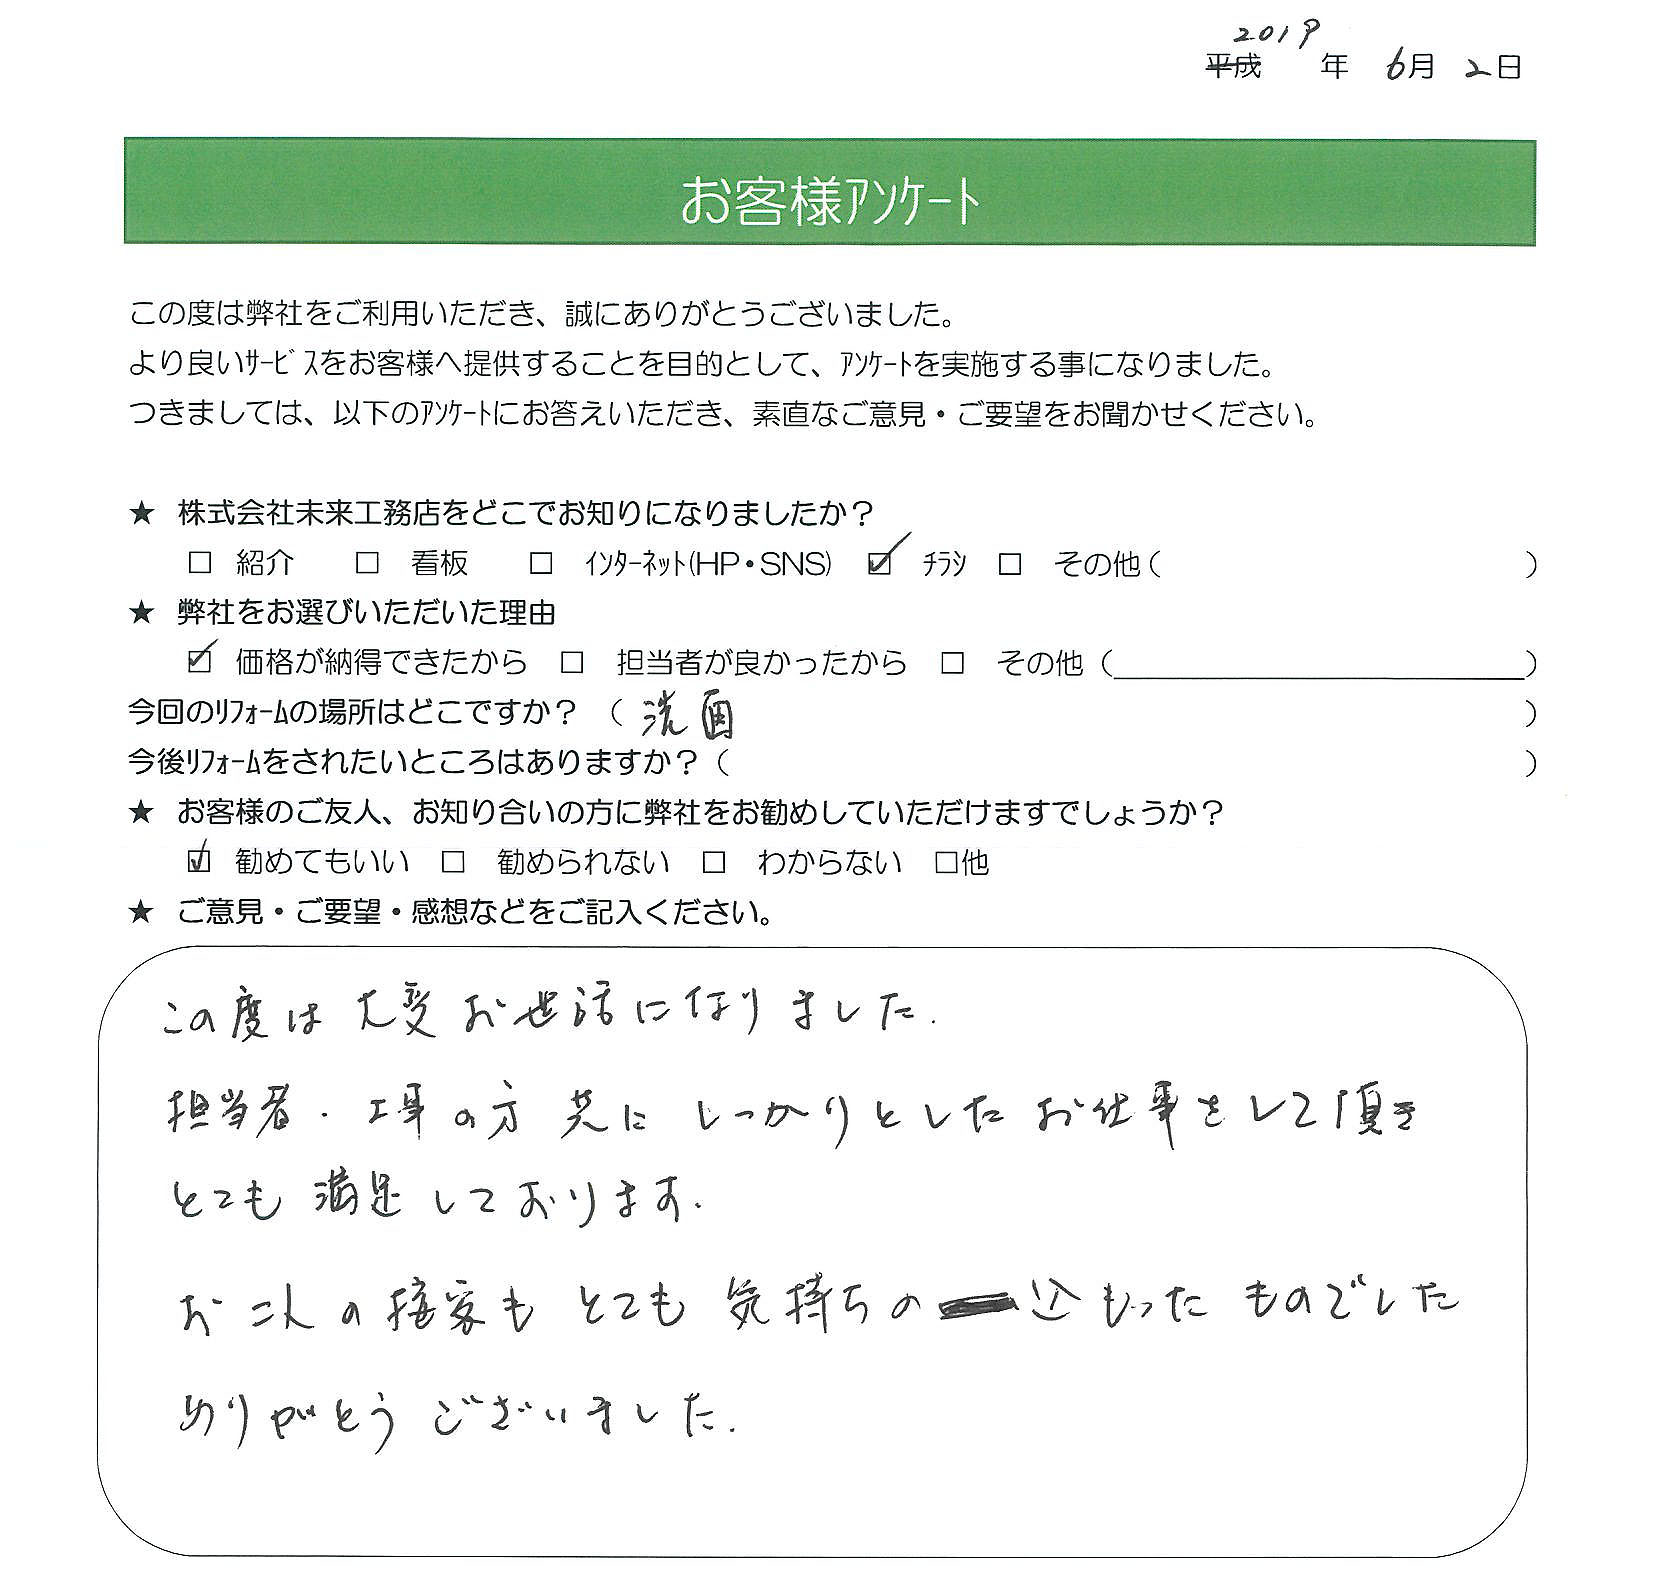 2019
平成 年 6月 2日
お客様ｱﾝｹｰﾄ
この度は弊社をご利用いただき、誠にありがとうございました。
より良いｻｰﾋﾞｽをお客様へ提供することを目的として、ｱﾝｹｰﾄを実施する事になりました。
つきましては、以下のｱﾝｹｰﾄにお答えいただき、素直なご意見・ご要望をお聞かせください。
★ 株式会社未来工務店をどこでお知りになりましたか？
□ 紹介 □ 看板 □ ｲﾝﾀｰﾈｯﾄ(HP・SNS) ☑ ﾁﾗｼ □ その他（ ）
★ 弊社をお選びいただいた理由
☑ 価格が納得できたから □ 担当者が良かったから □ その他（ ）
今回のﾘﾌｫｰﾑの場所はどこですか？（ 洗面 ）
今後ﾘﾌｫｰﾑをされたいところはありますか？（ ）
★ お客様のご友人、お知り合いの方に弊社をお勧めしていただけますでしょうか？
☑ 勧めてもいい □ 勧められない □ わからない □他
★ ご意見・ご要望・感想などをご記入ください。
この度は大変お世話になりました.
担当者・工事の方共にしっかりとしたお仕事をして頂き
とても満足しております.
お二人の接客もとても気持ちの込もったものでした
ありがとうございました.